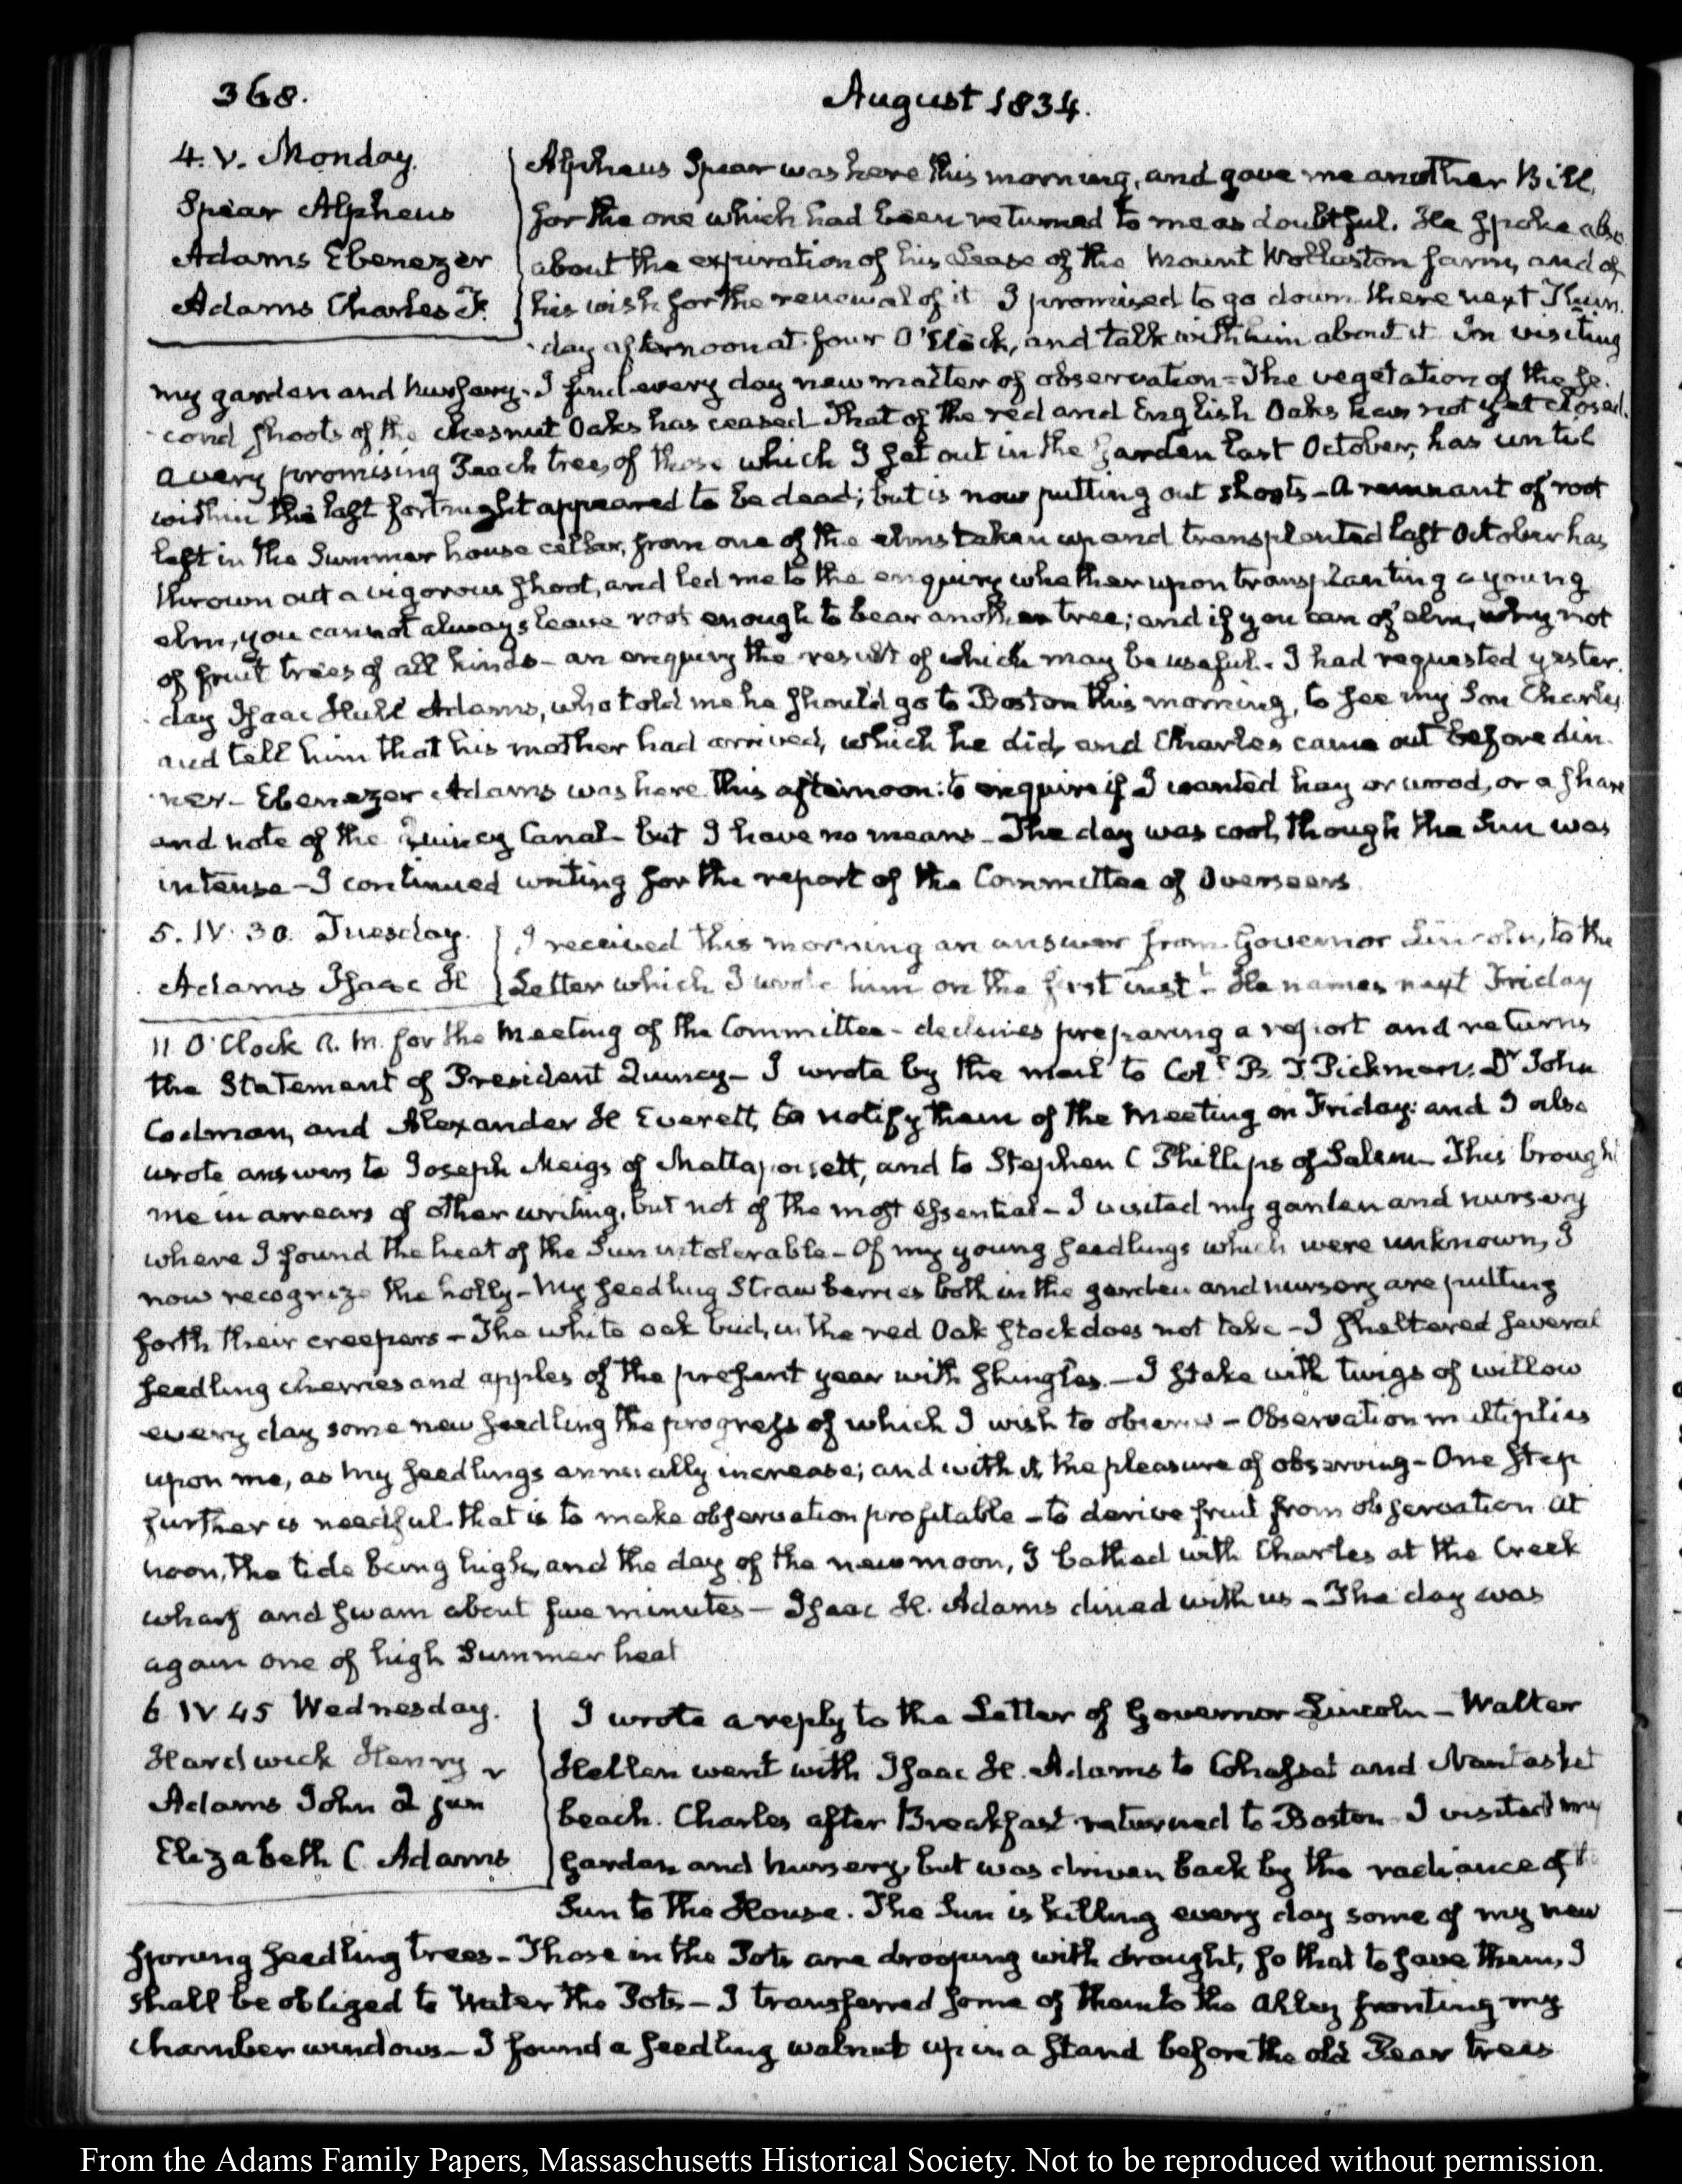 368.
August 1834.
4. V. Monday.
Spear Alpheus
Adams Ebenezer
Adams Charles F.
Alpheus Spear was here this morning, and gave me another Bill,
for the one which had been returned to me as doubtful. He spoke also
about the expiration of his Lease of the Mount Wollaston farm, and of
his wish for the renewal of it I promised to go down there next Thurs-
day afternoon at four O'Clock, and talk with him about it In visiting
my garden and nursery. I find every day new matter of observation - The vegetation of the se-
cond shoots of the chesnut Oaks has ceased That of the red and English Oaks has not yet closed.
a very promising Peach tree, of those which I set out in the garden last October, has until
within this last fortnight appeared to be dead; but is now putting out shoots - A remnant of root
left in the Summer house cellar, from one of the elms taken up and transplanted last October has
thrown out a vigorous shoot, and led me to the enquiry whether upon transplanting a young
elm, you cannot always leave root enough to bear another tree; and if you can of elm, why not
of fruit trees of all kinds - an enquiry the result of which may be useful. I had requested yester-
day Isaac Hull Adams, who told me he should go to Boston this morning, to see my Son Charles
and tell him that his mother had arrived, which he did, and Charles came out before din-
ner - Ebenezer Adams was here this afternoon: to enquire if I wanted hay or wood, or a share
and note of the Quincy Canal - but I have no means - The day was cool, though the Sun was
intense - I continued writing for the report of the Committee of Overseers
5. IV. 30. Tuesday.
Adams Isaac H
I received this morning an answer from Governor Lincoln, to the
Letter which I wrote him on the first inst. He names next Friday
11 O'Clock A. M. for the meeting of the Committee - declines preparing a report and returns
the Statement of President Quincy - I wrote by the mail to Col. B. T. Pickman, Dr John
Codman, and Alexander H Everett, to notify them of the Meeting on Friday: and I also
wrote answers to Joseph Meigs of Mattapoisett, and to Stephen C Phillips of Salem - This brought
me in arrears of other writing, but not of the most essential - I visited my garden and nursery
where I found the heat of the Sun intolerable - Of my young seedlings which were unknown, I
now recognize the holly - My seedling Strawberries both in the garden and nursery are putting
forth their creepers - The white oak bud, in the red Oak stock does not take - I sheltered several
seedling cherries and apples of the present year with shingles. - I stake with twigs of willow
every day some new seedling the progress of which I wish to observe - Observation multiplies
upon me, as my seedlings annually increase; and with it, the pleasure of observing - One step
further is needful. that is to make observation profitable - to derive fruit from observation At
noon, the tide being high, and the day of the new moon, I bathed with Charles at the Creek
wharf and swam about five minutes - Isaac H. Adams dined with us - The day was
again one of high Summer heat
6 IV 45 Wednesday.
Hardwick Henry
Adams John 2 jun
Elizabeth C Adams
I wrote a reply to the Letter of Governor Lincoln - Walter
Hellen went with Isaac H. Adams to Cohasset and Nantasket
beach. Charles after Breakfast returned to Boston I visited my
garden and nursery, but was driven back by the radiance of the
Sun to the House. The Sun is killing every day some of my new
sprung seedling trees - Those in the Pots are drooping with drought, so that to save them, I
shall be obliged to Water the Pots - I transferred some of them to the Alley fronting my
chamber windows - I found a seedling walnut up in a stand before the old Pear trees
From the Adams Family Papers, Massachusetts Historical Society. Not to be reproduced without permission.